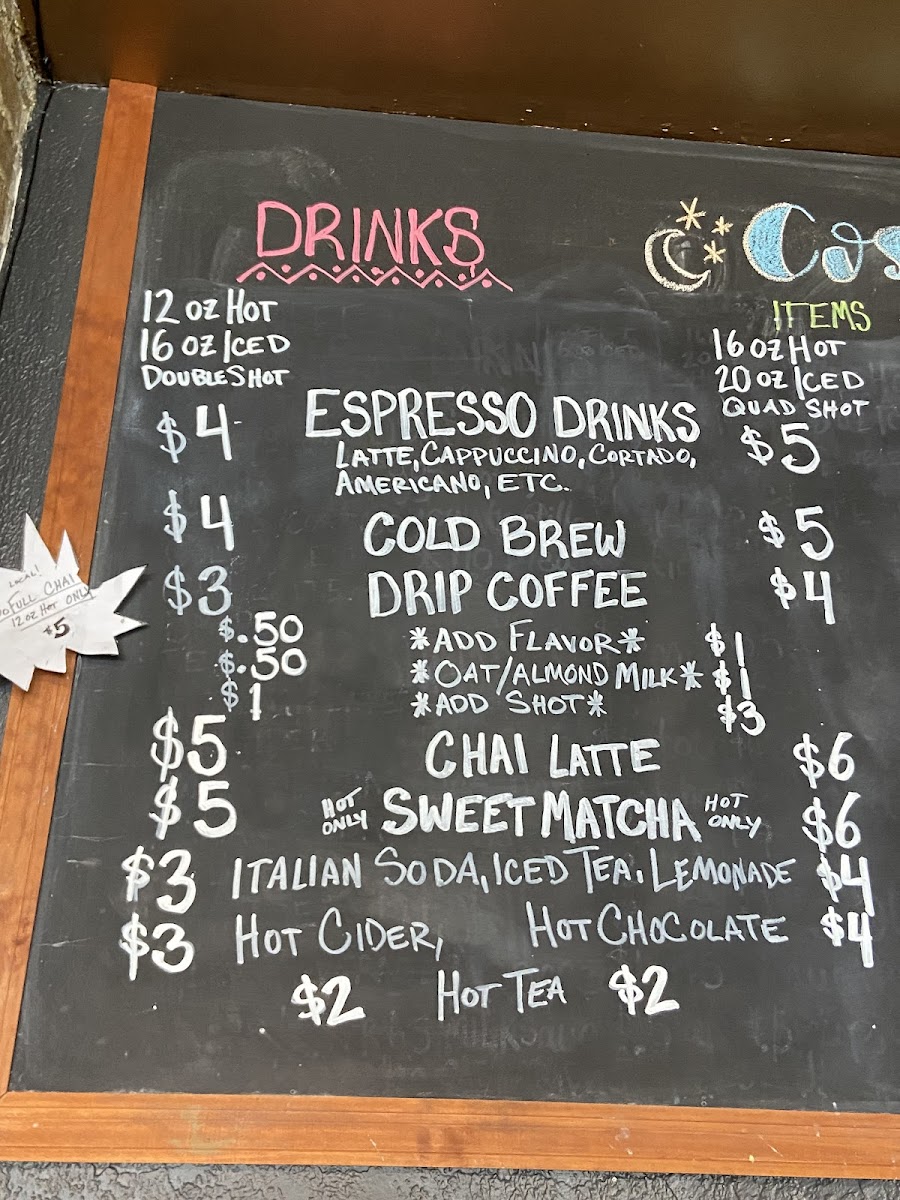 DRINKS
12 OZ HOT
16 OZ ICED
DOUBLE SHOT
ITEMS
16 OZ HOT
20 OZ ICED
QUAD SHOT
$4 ESPRESSO DRINKS $5
LATTE, CAPPUCCINO, CORTADO,
AMERICANO, ETC.
$4 COLD BREW $5
$3 DRIP COFFEE $4
$.50 *ADD FLAVOR* $1
$.50 *OAT/ALMOND MILK* $1
$1 *ADD SHOT* $3
$5 CHAI LATTE $6
$5 HOT ONLY SWEET MATCHA HOT ONLY $6
$3 ITALIAN SODA, ICED TEA, LEMONADE $4
$3 HOT CIDER, HOT CHOCOLATE $4
$2 HOT TEA $2
LOCAL!
FULL CHAI
12 OZ HOT ONLY
$5